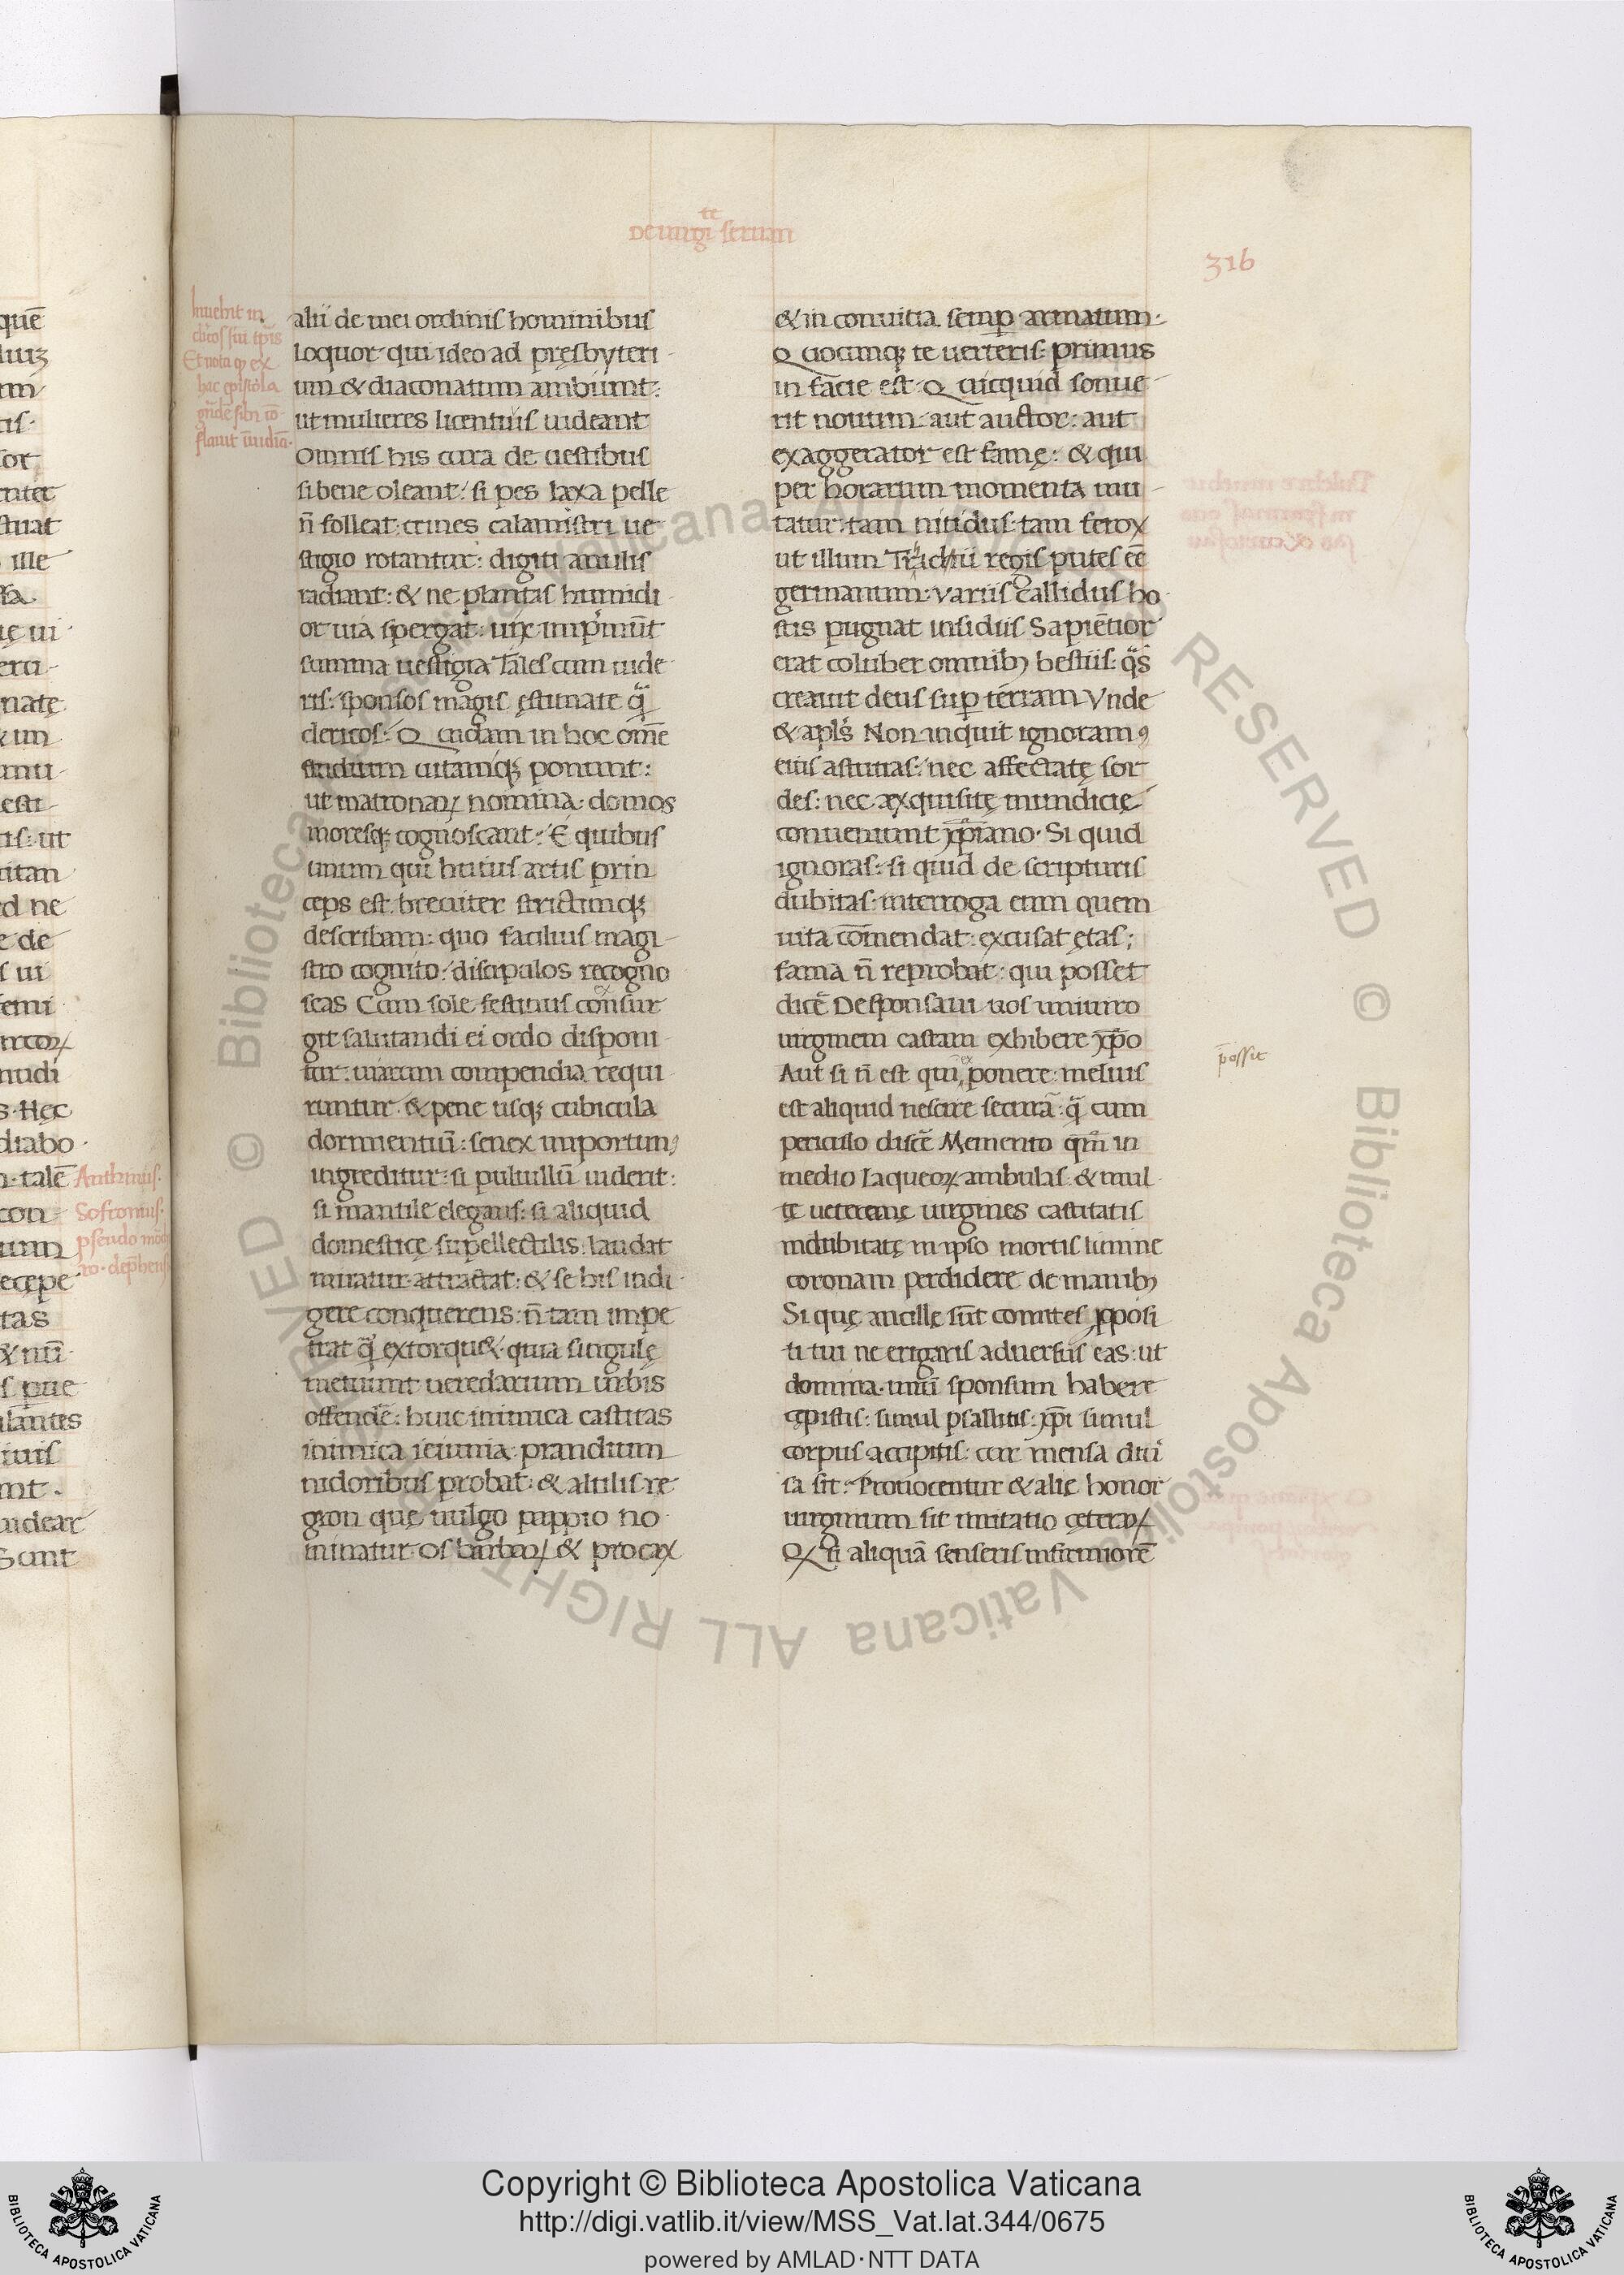 De uirgi te seruan
316
Inuehit in
clicos sui tpis
Et nota q ex
hac epistola
flauit inuidia.
alii de mei ordinis hominibus
loquor qui ideo ad pręsbyteri-
um & diaconatum ambiunt:
ut mulieres licentius uideant
Omnis his cura de uestibus
si bene oleant: si pes laxa pelle
n̄ folleat: crines calamistri ue
stigio rotantur: digiti anulis
radiant: & ne plantas humidi-
or uia spergat: uix imprimūt
summa uestigia Tales cum uide
ris: sponsos magis ęstimate quā
clericos: Quidam in hoc omē
studium uitamq; ponunt:
ut matronaꝝ nomina: domos
moresq; cognoscant: E quibus
unum qui huius artis prin
ceps est breuiter strictimq;
describam: quo facilius magi-
stro cognito: discipulos recogno
scas Cum sole festinus consur
ex
git salutandi ei ordo disponi-
tur: uiarum compendia requi-
runtur & pene usq; cubicula
dormientiū: senex importunꝰ
ingreditur: si puluillū uiderit:
si mantile elegans: si aliquid
domesticę supellectilis: laudat
miratur attractat: & se his indi-
gere conquerens: n̄ tam impe
trat quā extorqu&: quia singulę
metuunt ueredarium urbis
offendē: huic inimica castitas
inimica ieiunia: prandium
nidoribus probat: & altilis re
gion que uulgo pappio no-
minatur Os barbaꝝ & procax
& in conuitia semꝑ armatum.
Quocunq; te uerteris: primus
in facie est: Quicquid sonue-
rit nouum: aut auctor: aut
exaggerator est famę: & qui
per horarum momenta mu-
tatur: tam nitidus: tam ferox
ut illum Trachii regis putes eē
germanum: Variis callidus ho-
stis pugnat insidiis Sapientior
erat coluber omnibꝫ bestiis: quas
creauit deus suꝑ terram Vnde
& apls Non inquit ignoramꝰ
eius astutias: nec affectatę sor
des: nec exquisitę mundicię
conueniunt xp̄iano. Si quid
ignoras: si quid de scripturis
dubitas: interroga eum quem
uita cōmendat: excusat ętas;
fama n̄ reprobat: qui posset
dicē Desponsaui uos uniuiro
uirginem castam exhibere xp̄o
possit
Aut si n̄ est qui ex ponere: melius
est aliquid nescire securā: quā cum
periculo discē Memento qm̄ in
medio laqueoꝝ ambulas: & mul-
tę ueteranę uirgines castitatis
indubitatę in ipso mortis limine
coronam perdidere de manibꝫ
Si quę ancillę sūt comites ꝓposi
ti tui ne erigaris aduersus eas: ut
domina. unū sponsum habere
cępistis: simul psallitis: xp̄i simul
corpus accipitis: cur mensa diu
sa sit: Prouocentur & alię honor
uirginum sit inuitatio cęteraꝝ
Qꝫ si aliquā senseris infirmiorē
Anthimus.
Sofronius.
Copyright © Biblioteca Apostolica Vaticana
http://digi.vatlib.it/view/MSS_Vat.lat.344/0675
powered by AMLAD·NTT DATA
BIBLIOTECA APOSTOLICA VATICANA
BIBLIOTECA APOSTOLICA VATICANA